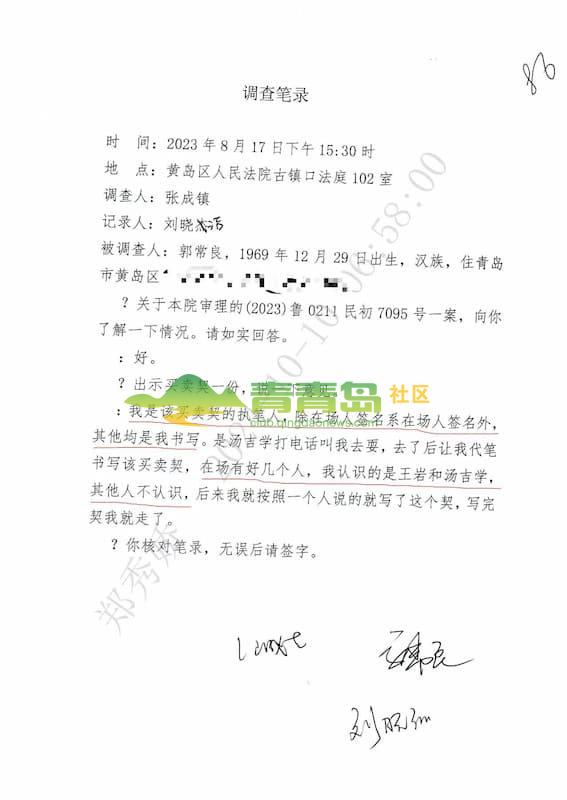 调查笔录
时　间：2023 年 8 月 17 日下午 15:30 时
地　点：黄岛区人民法院古镇口法庭 102 室
调查人：张成镇
记录人：刘晓
被调查人：郭常良，1969 年 12 月 29 日出生，汉族，住青岛
市黄岛区
？关于本院审理的(2023)鲁 0211 民初 7095 号一案，向你
了解一下情况。请如实回答。
：好。
？出示买卖契一份，说 意见。
青青岛社区
club.qingdaonews.com
：我是该买卖契的执笔人，除在场人签名系在场人签名外，
其他均是我书写。是汤吉学打电话叫我去耍，去了后让我代笔
书写该买卖契，在场有好几个人，我认识的是王岩和汤吉学，
其他人不认识，后来我就按照一个人说的就写了这个契，写完
契我就走了。
？你核对笔录，无误后请签字。
郑秀娇